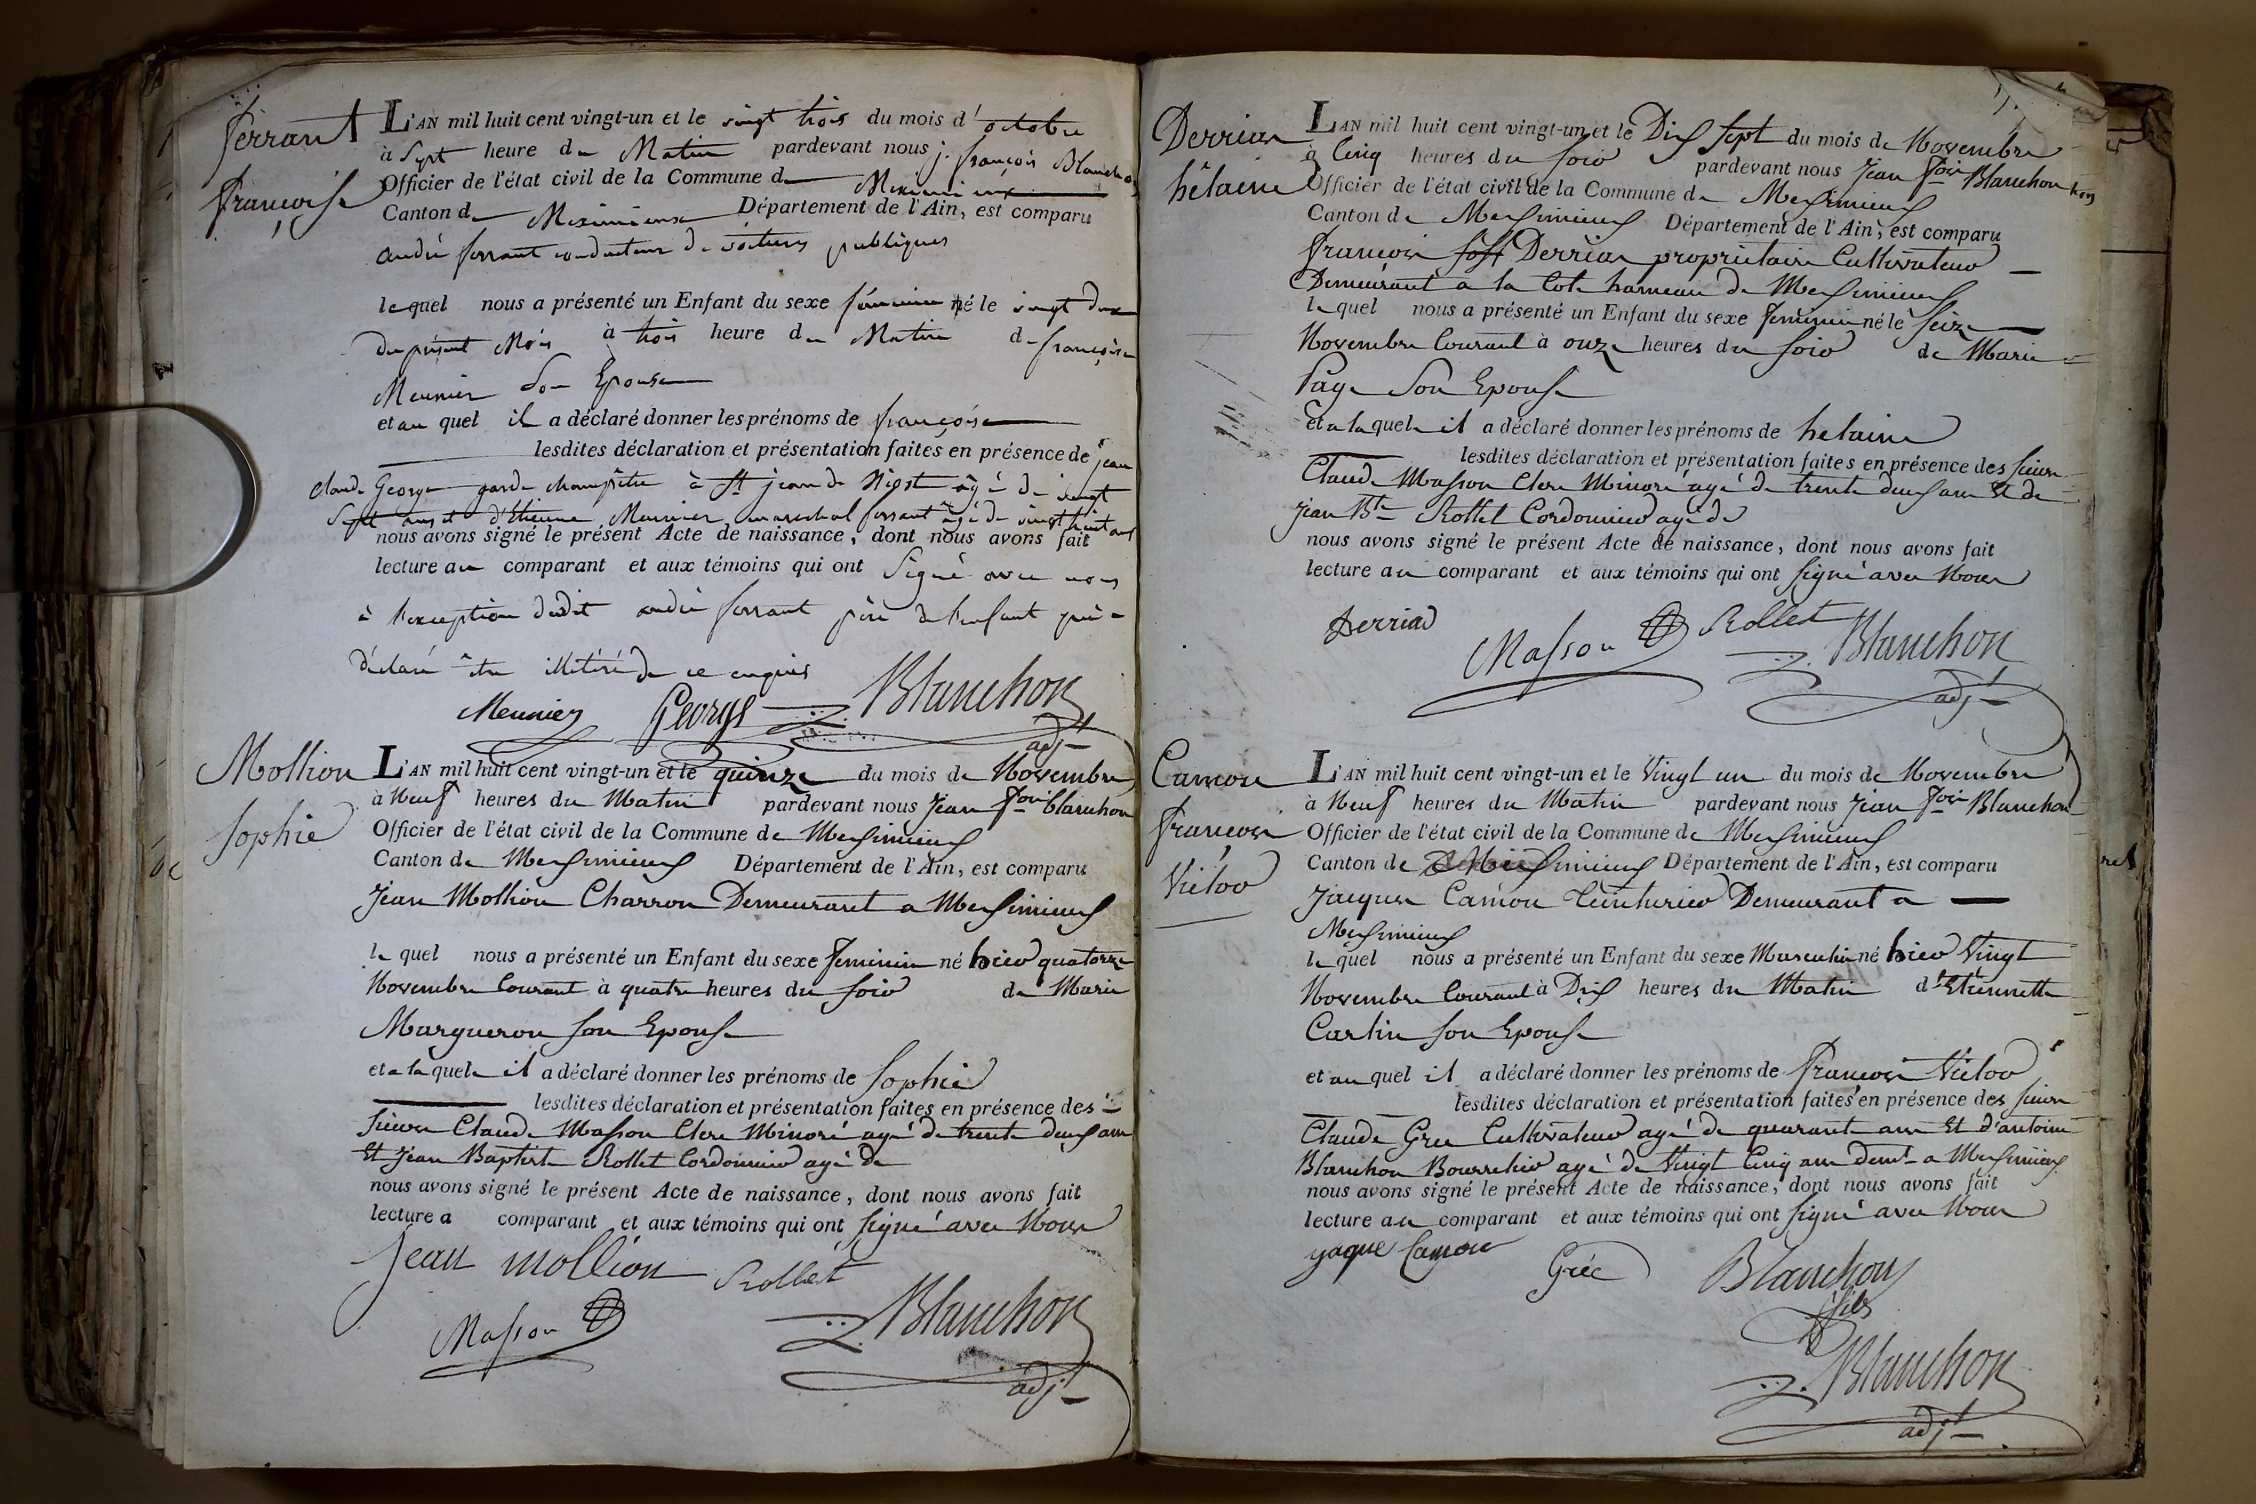 ferrant
françoise
L'AN mil huit cent vingt-un et le vingt trois du mois d'octobre
à Sept heure du Matin pardevant nous j. françois Blanchon
Officier de l'état civil de la Commune de Meximieux
Canton de Meximieux Département de l'Ain, est comparu
andré ferrant conducteur de voitures publiques
lequel nous a présenté un Enfant du sexe féminin né le vingt deux
du présent Mois à trois heure du Matin de françoise
Meunier Son Epouse
et au quel il a déclaré donner les prénoms de françoise
lesdites déclaration et présentation faites en présence de jean
claude George garde champêtre à St jean de Niost âgé de vingt
Sept ans et d'Etienne Meunier marechal ferrant âgé de vingt huit ans
nous avons signé le présent Acte de naissance, dont nous avons fait
lecture au comparant et aux témoins qui ont Signé avec nous
à l'exception dudit andré ferrant père de l'enfant qui a
déclaré être illitéré de ce enquis
Meunier George Blanchon
adjt
Mollion
Sophie
L'AN mil huit cent vingt-un et le quinze du mois de Novembre
à Neuf heures du Matin pardevant nous Jean fois blanchon
Officier de l'état civil de la Commune de Meximieux
Canton de Meximieux Département de l'Ain, est comparu
Jean Mollion Charron Demeurant a Meximieux
le quel nous a présenté un Enfant du sexe feminin né hier quatorze
Novembre Courant à quatre heures du soir de Marie
Margueron son Epouse
et a la quele il a déclaré donner les prénoms de Sophie
lesdites déclaration et présentation faites en présence des
sieurs Claude Masson Clerc Minoré agé de trente deux ans
Et Jean Baptiste Rollet Cordonnier agé de
nous avons signé le présent Acte de naissance, dont nous avons fait
lecture a comparant et aux témoins qui ont signé avec Nous
Jean mollion Rollet
Masson Blanchon
adjt
Derrias
hélaine
L'AN mil huit cent vingt-un et le Dix sept du mois de Novembre
à Cinq heures du soir pardevant nous Jean fois Blanchon
Officier de l'état civil de la Commune de Meximieux
Canton de Meximieux Département de l'Ain, est comparu
françois Derrias proprietaire Cultivateur
Demeurant a la Cote hameau de Meximieux
le quel nous a présenté un Enfant du sexe feminin né le seize
Novembre Courant à onze heures du soir de Marie
Page Son Epouse
et a la quele il a déclaré donner les prénoms de helaine
lesdites déclaration et présentation faites en présence des sieurs
Claude Masson Clerc Minoré agé de trente deux ans Et de
Jean Bte Rollet Cordonnier agé de
nous avons signé le présent Acte de naissance, dont nous avons fait
lecture au comparant et aux témoins qui ont signé avec Nous
Derrias Masson Rollet Blanchon
adjt
Camou
françois
Victor
L'AN mil huit cent vingt-un et le Vingt un du mois de Novembre
à Neuf heures du Matin pardevant nous Jean fois Blanchon
Officier de l'état civil de la Commune de Meximieux
Canton de Meximieux Département de l'Ain, est comparu
Jacques Camou Teinturier Demeurant a
Meximieux
le quel nous a présenté un Enfant du sexe Masculin né hier Vingt
Novembre Courant à Dix heures du Matin d'Etiennette
Carlin son Epouse
et au quel il a déclaré donner les prénoms de françois Victor
lesdites déclaration et présentation faites en présence des sieurs
Claude Gree Cultivateur agé de quarante ans Et D'antoine
Blanchon Bourrelier agé de Vingt Cinq ans demt a Meximieux
nous avons signé le présent Acte de naissance, dont nous avons fait
lecture au comparant et aux témoins qui ont signé avec Nous
yaque Camou Grée Blanchon
fils
Blanchon
adjt